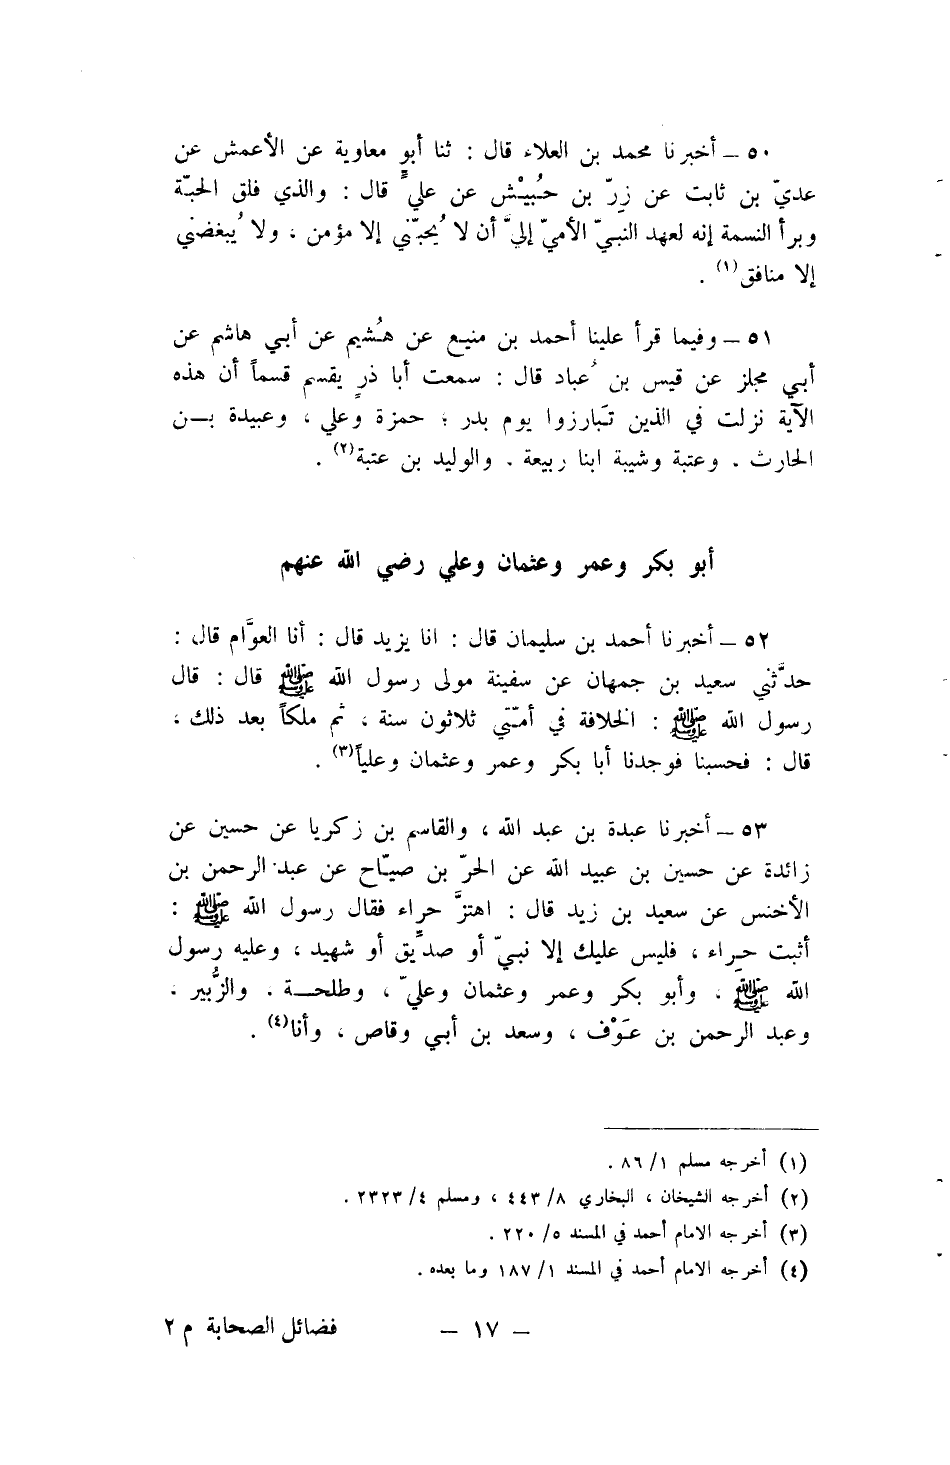 ٥٠ ــ أخبرنا محمد بن العلاء قال : ثنا أبو معاوية عن الأعمش عن
عديّ بن ثابت عن زِرّ بن حُبيْش عن عليّ قال : والذي فلق الحبّة
وبرأ النسمة إنه لعهد النبيّ الأميّ إليَّ أن لا يُحبّني إلا مؤمن ، ولا يُبغضني
إلا منافق(١) .
٥١ ــ وفيما قرأ علينا أحمد بن منيع عن هُشيم عن أبي هاشم عن
أبي مجلز عن قيس بن عُباد قال : سمعت أبا ذرٍ يقسم قسماً أن هذه
الآية نزلت في الذين تَبارزوا يوم بدر ؛ حمزة وعلي ، وعبيدة بــن
الحارث . وعتبة وشيبة ابنا ربيعة . والوليد بن عتبة(٢) .
أبو بكر وعمر وعثمان وعلي رضي الله عنهم
٥٢ ــ أخبرنا أحمد بن سليمان قال : انا يزيد قال : أنا العوَّام قال :
حدَّثني سعيد بن جمهان عن سفينة مولى رسول الله ﷺ قال : قال
رسول الله ﷺ : الخلافة في أمّتي ثلاثون سنة ، ثم ملكاً بعد ذلك ،
قال : فحسبنا فوجدنا أبا بكر وعمر وعثمان وعلياً(٣) .
٥٣ ــ أخبرنا عبدة بن عبد الله ، والقاسم بن زكريا عن حسين عن
زائدة عن حسين بن عبيد الله عن الحرّ بن صيّاح عن عبد الرحمن بن
الأخنس عن سعيد بن زيد قال : اهتزَّ حراء فقال رسول الله ﷺ :
أثبت حِراء ، فليس عليك إلا نبيّ أو صدّيق أو شهيد ، وعليه رسول
الله ﷺ ، وأبو بكر وعمر وعثمان وعليّ ، وطلحــة . والزُّبير .
وعبد الرحمن بن عَوْف ، وسعد بن أبي وقاص ، وأنا(٤) .
(١) أخرجه مسلم ١/ ٨٦ .
(٢) أخرجه الشيخان ، البخاري ٨/ ٤٤٣ ، ومسلم ٤/ ٢٣٢٣ .
(٣) أخرجه الامام أحمد في المسند ٥/ ٢٢٠ .
(٤) أخرجه الامام أحمد في المسند ١/ ١٨٧ وما بعده .
ــ ١٧ ــ فضائل الصحابة م ٢